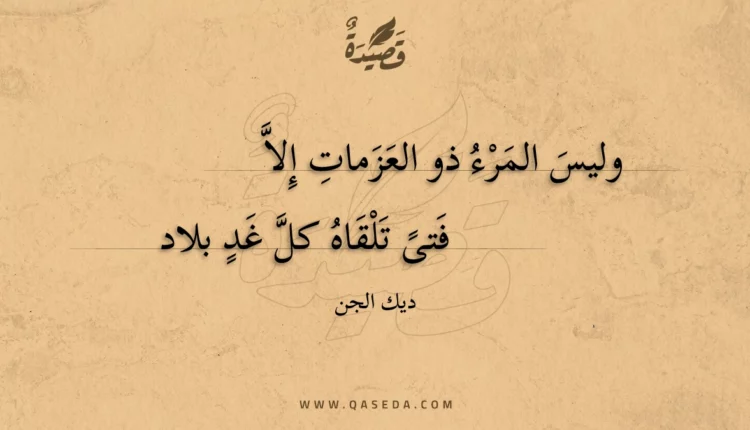 قَصِيدَةٌ
وليسَ المَرْءُ ذو العَزَماتِ إِلاَّ
فَتىً تَلْقَاهُ كلَّ غَدٍ بلاد
ديك الجن
WWW.QASEDA.COM